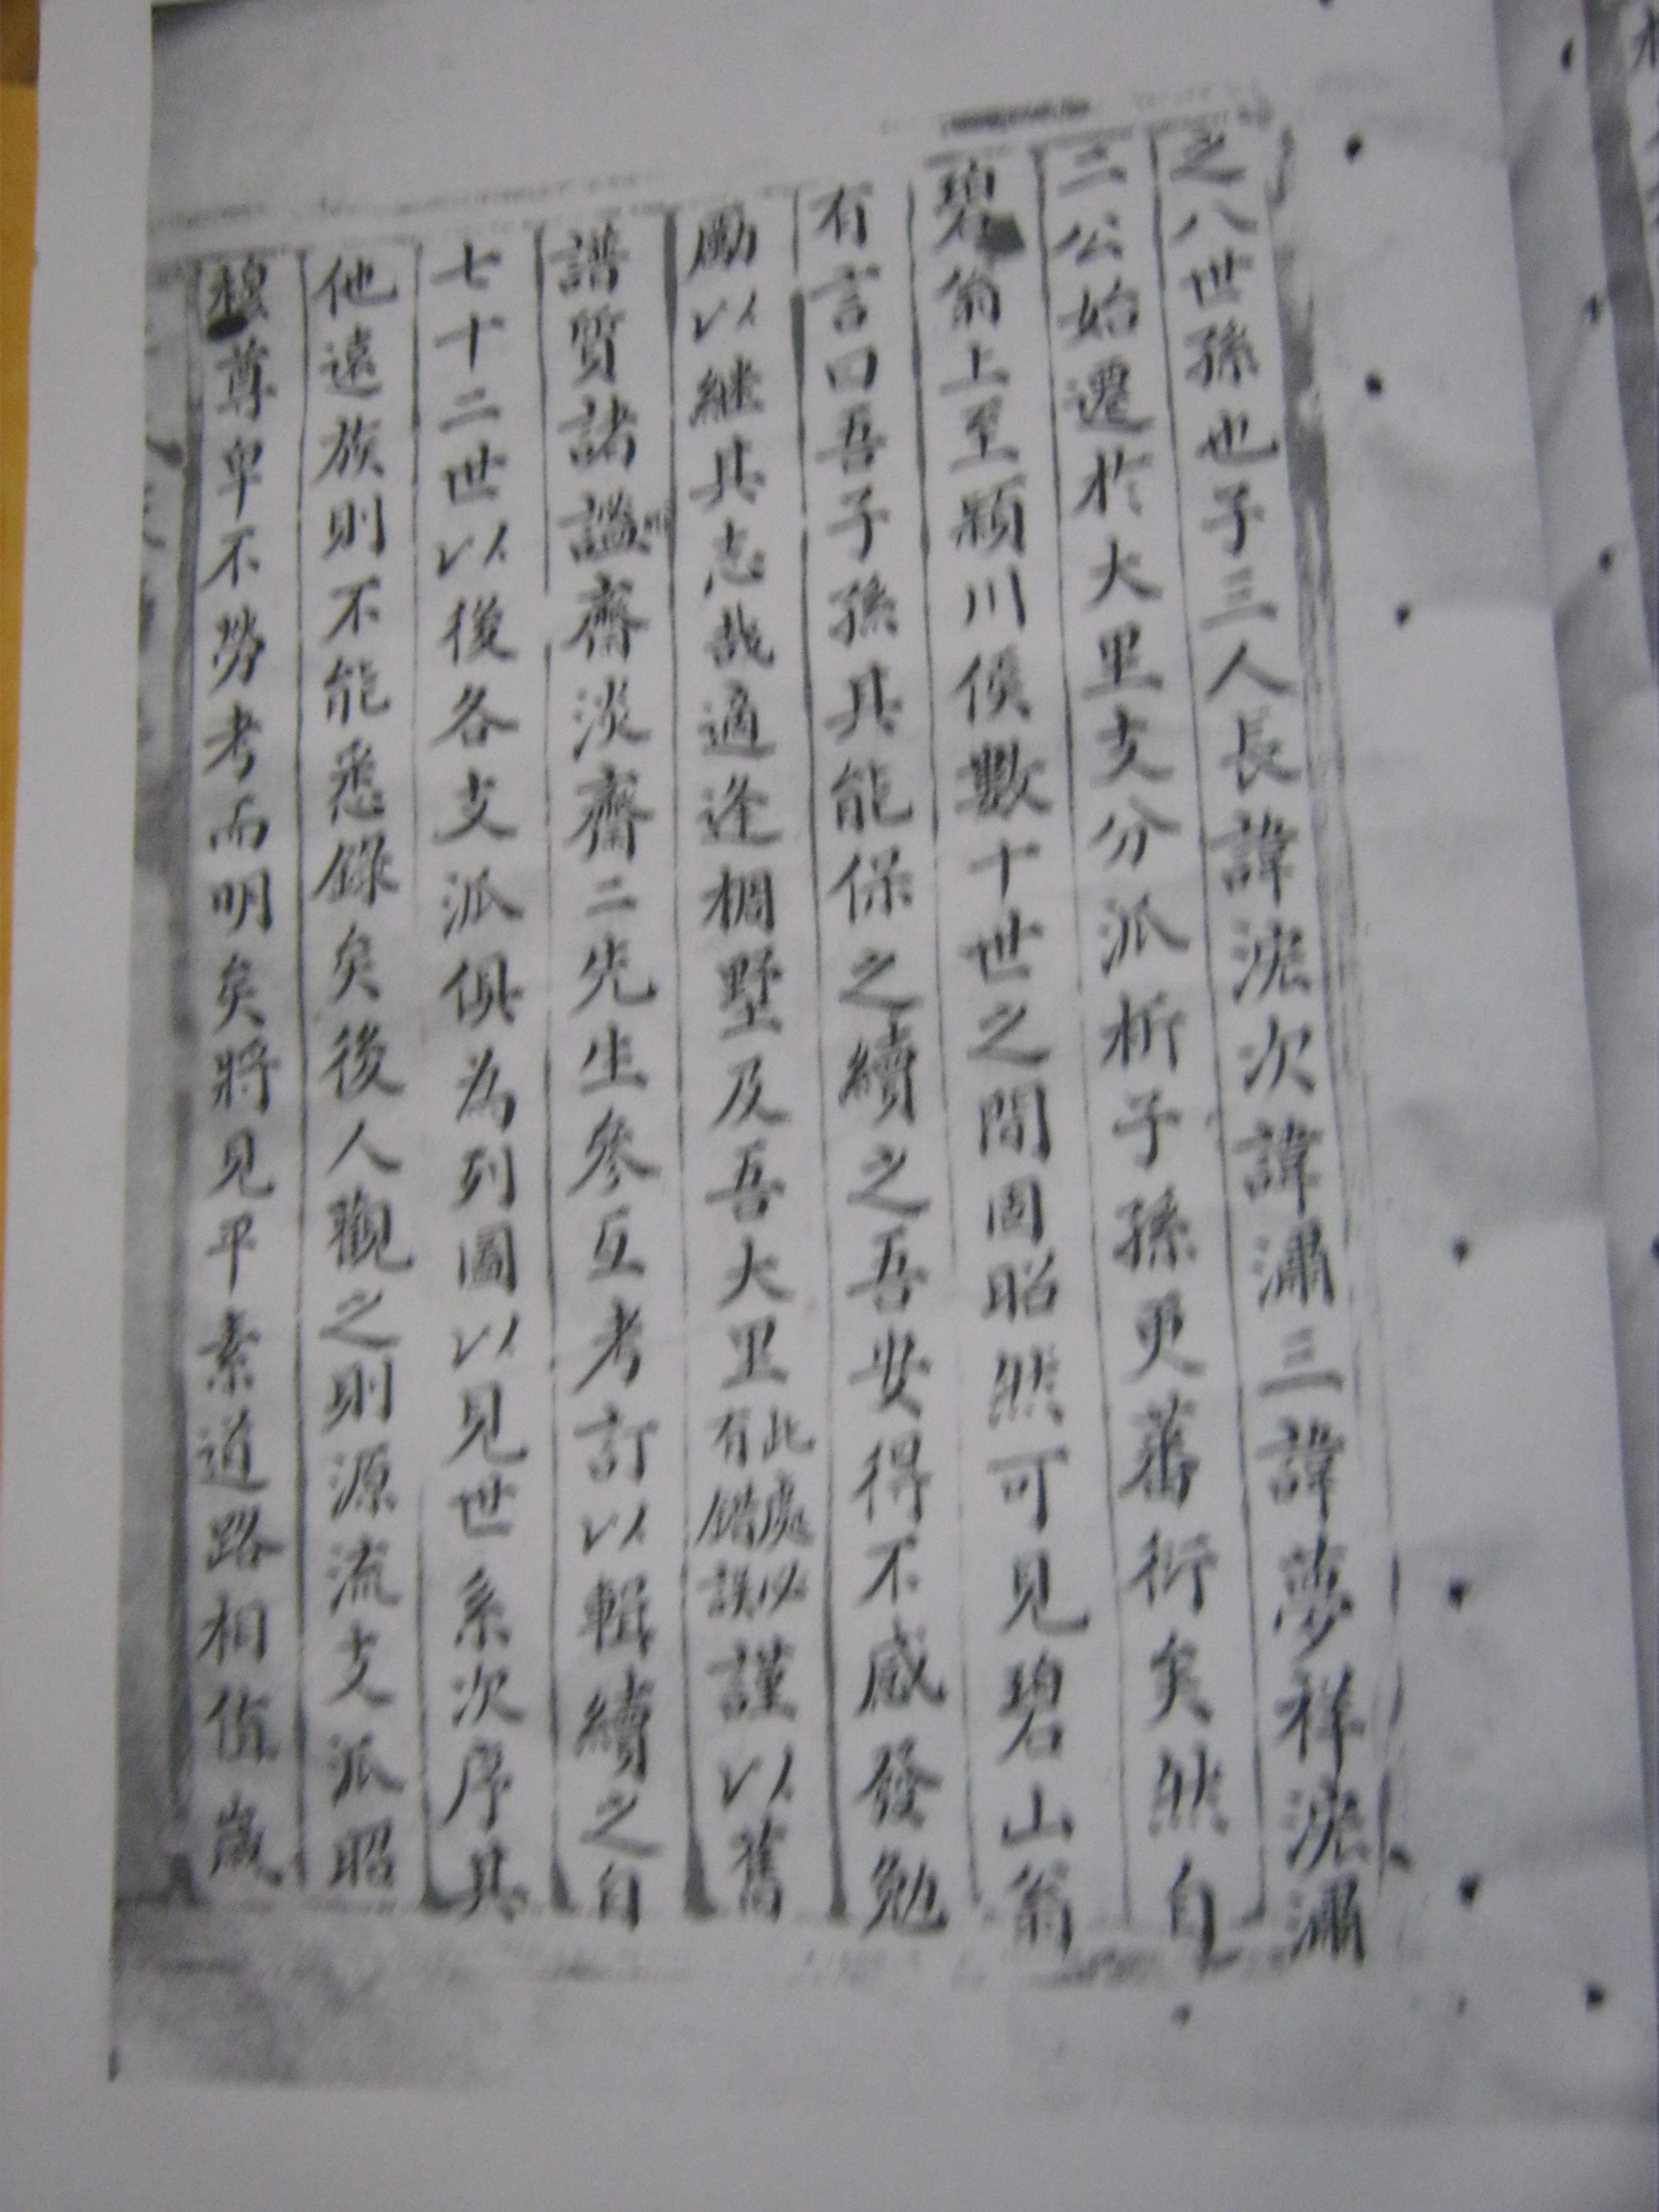 之八世孫也子三人長諱淲次諱潚三諱夢祥淲潚
二公始遷於大里支分派析子孫更蕃衍矣然自
碧翁上至潁川侯數十世之間固昭然可見碧山翁
有言曰吾子孫其能保之續之吾安得不感發勉
勵以継其志哉適逢棡墅及吾大里此處必有錯誤謹以舊
譜質諸謐齋淡齋二先生參互考訂以輯續之自
七十二世以後各支派俱為列圖以見世系次序其
他遠族則不能悉錄矣後人觀之則源流支派昭
穆尊卑不勞考而明矣將見平素道路相值歲